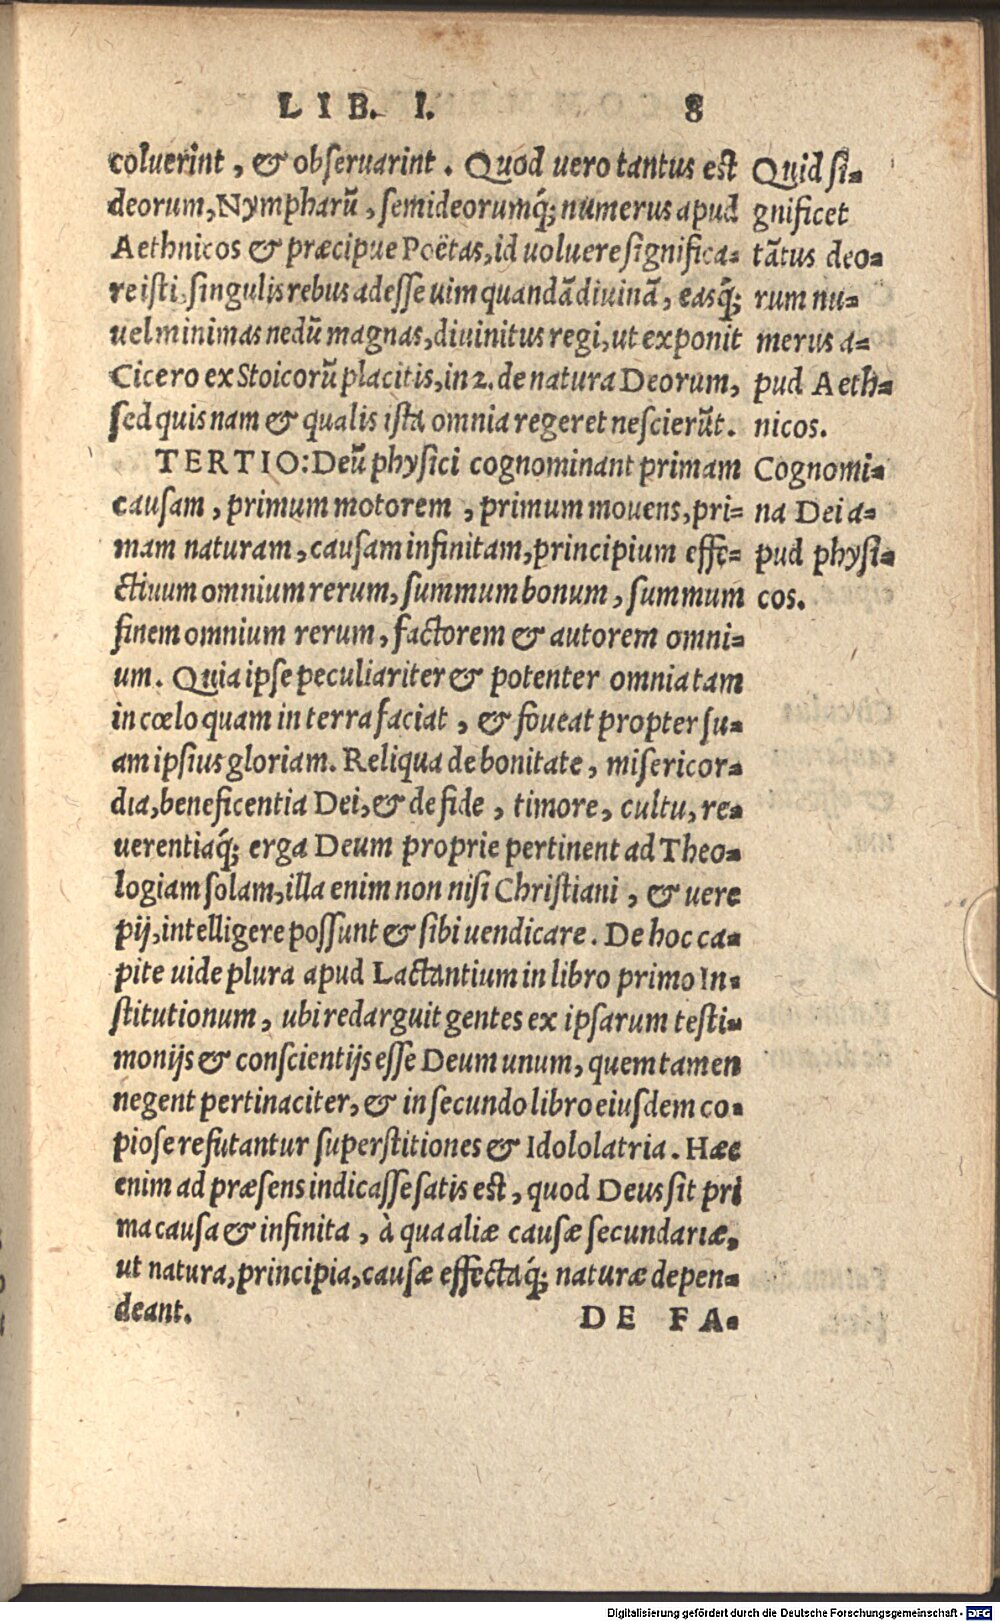 LIB. I. 8
coluerint, & obseruarint. Quod uero tantus est
deorum, Nympharũ, semideorumq́; numerus apud
Aethnicos & præcipue Poëtas, id uoluere significa-
re isti, singulis rebus adesse uim quandã diuinã, easq́;
uel minimas nedũ magnas, diuinitus regi, ut exponit
Cicero ex Stoicorũ placitis, in 2. de natura Deorum,
sed quis nam & qualis ista omnia regeret nescierũt.
Quid si-
gnificet
tãtus deo-
rum nu-
merus a-
pud Aeth-
nicos.
TERTIO: Deũ physici cognominant primam
causam, primum motorem, primum mouens, pri-
mam naturam, causam infinitam, principium effe-
ctiuum omnium rerum, summum bonum, summum
finem omnium rerum, factorem & autorem omni-
um. Quia ipse peculiariter & potenter omnia tam
in cœlo quam in terra faciat, & foueat propter su-
am ipsius gloriam. Reliqua de bonitate, misericor-
dia, beneficentia Dei, & de fide, timore, cultu, re-
uerentiaq́; erga Deum proprie pertinent ad Theo-
logiam solam, illa enim non nisi Christiani, & uere
pij, intelligere possunt & sibi uendicare. De hoc ca-
pite uide plura apud Lactantium in libro primo In-
stitutionum, ubi redarguit gentes ex ipsarum testi-
monijs & conscientijs esse Deum unum, quem tamen
negent pertinaciter, & in secundo libro eiusdem co-
piose refutantur superstitiones & Idololatria. Hæc
enim ad præsens indicasse satis est, quod Deus sit pri
ma causa & infinita, à qua aliæ causæ secundariæ,
ut natura, principia, causæ effectaq́; naturæ depen-
deant.
Cognomi-
na Dei a-
pud physi-
cos.
DE FA-
Digitalisierung gefördert durch die Deutsche Forschungsgemeinschaft - DFG